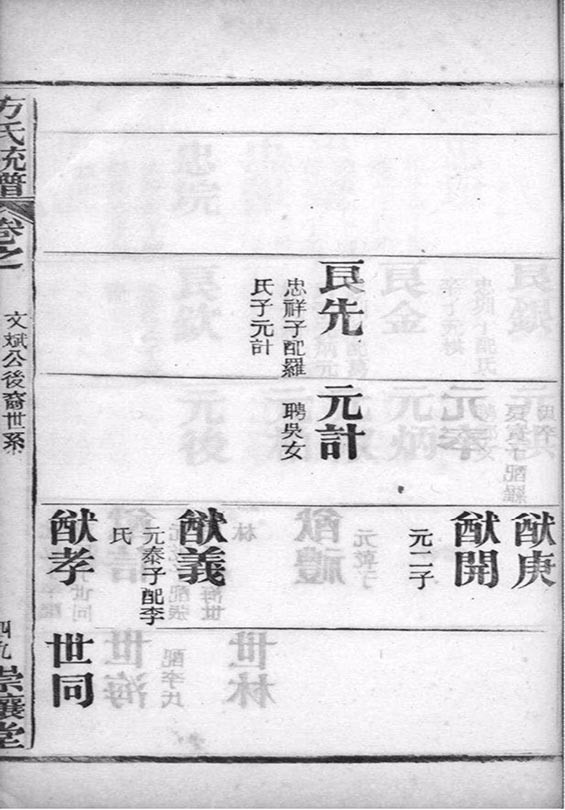 良先
忠祥子配羅
氏子元計
元計
聘吳女
猷庚
猷開
元二子
猷義
元泰子配李
氏
猷孝
世同
方氏統譜
卷之
文斌公後裔世系
四九
崇讓堂